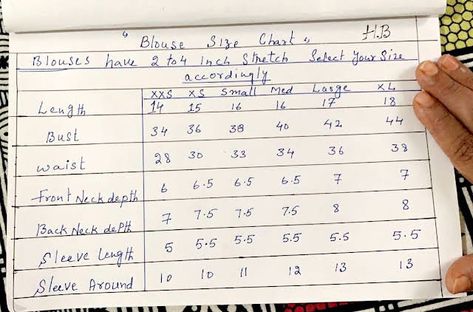 "Blouse Size Chart"
H.B
Blouses have 2 to 4 inch stretch Select Your Size
accordingly
XXS XS Small Med Large XL
Length 14 15 16 16 17 18
Bust 34 36 38 40 42 44
waist 28 30 33 34 36 38
Front Neck depth 6 6.5 6.5 6.5 7 7
Back Neck depth 7 7.5 7.5 7.5 8 8
Sleeve Length 5 5.5 5.5 5.5 5.5 5.5
Sleeve Around 10 10 11 12 13 13